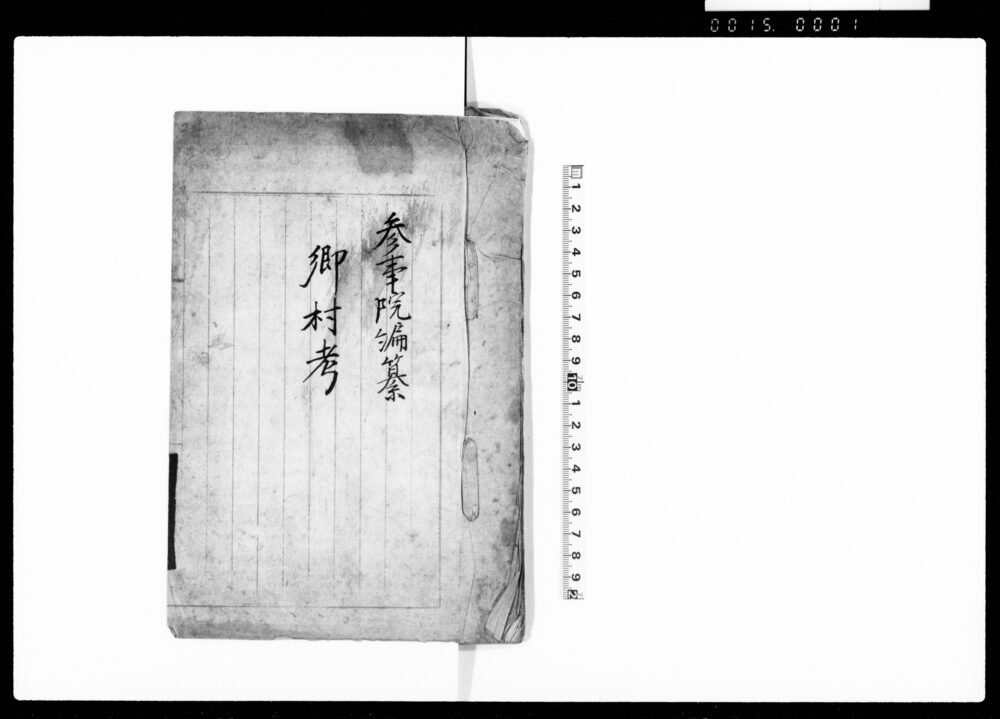 0015. 0001
参事院編纂
郷村考
1 2 3 4 5 6 7 8 9 10 1 2 3 4 5 6 7 8 9 2